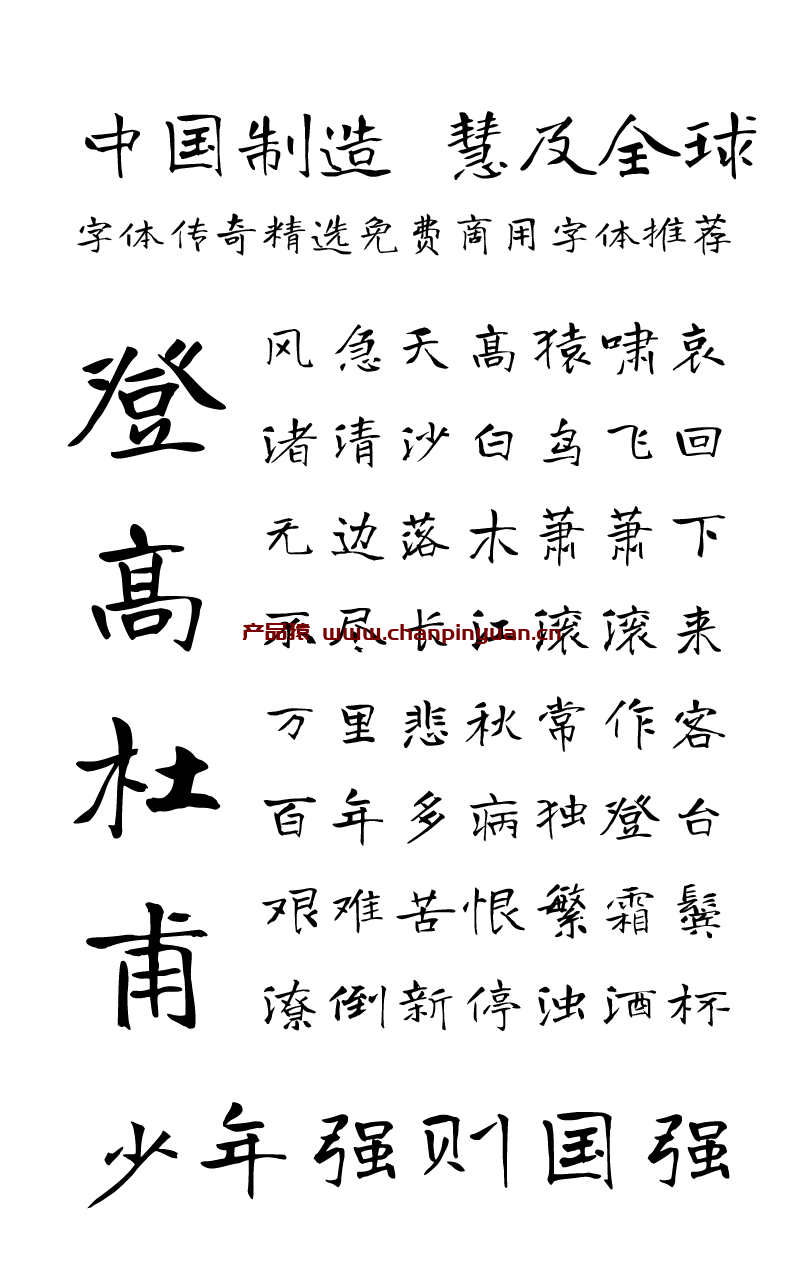 中国制造 慧及全球
字体传奇精选免费商用字体推荐
登高杜甫
风急天高猿啸哀
渚清沙白鸟飞回
无边落木萧萧下
不尽长江滚滚来
产品猿 www.chanpinyuan.cn
万里悲秋常作客
百年多病独登台
艰难苦恨繁霜鬓
潦倒新停浊酒杯
少年强则国强